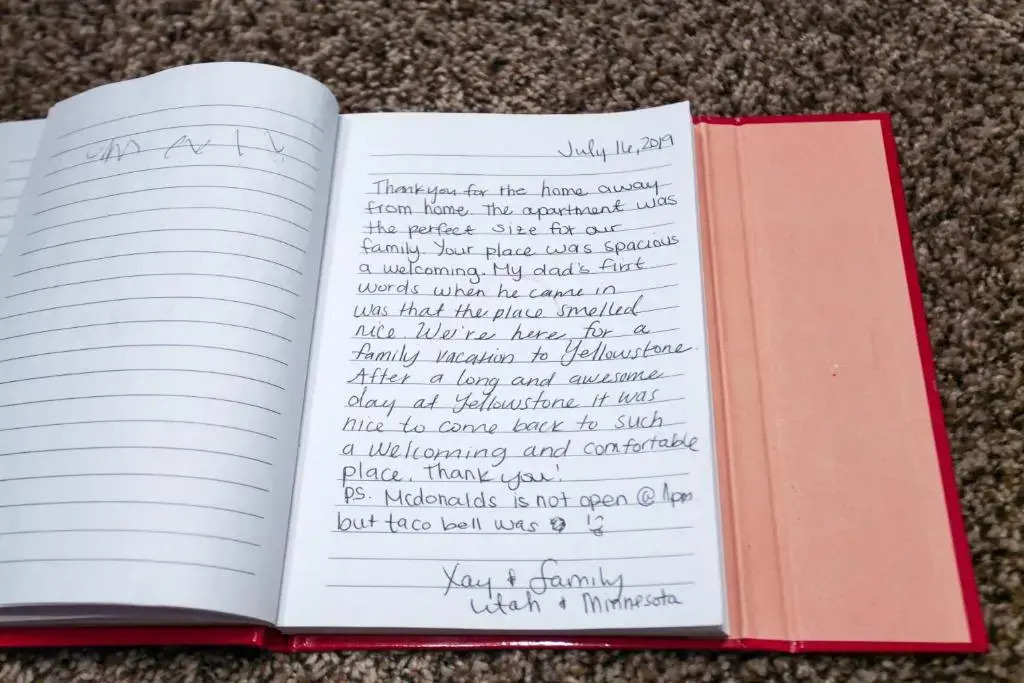 July 16, 2019
Thankyou for the home away
from home. The apartment was
the perfect size for our
family. Your place was spacious
a welcoming. My dad's first
words when he came in
was that the place smelled
nice. We're here for a
family vacation to Yellowstone.
After a long and awesome
day at Yellowstone it was
nice to come back to such
a welcoming and comfortable
place. Thank you!
PS. Mcdonalds is not open @ 1pm
but taco bell was
Xay & family
Utah & Minnesota